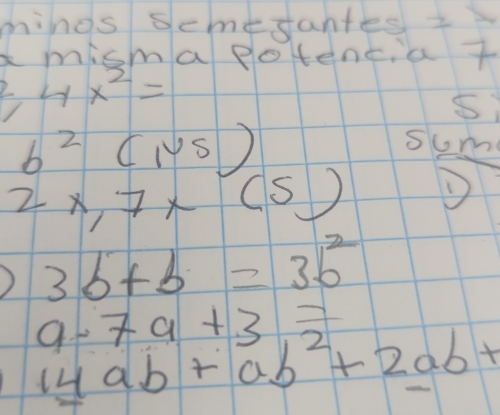 minos semejantes =
misma potencia 7
, 4x² =
b² (NS)
2x, 7x (S)
1)
) 3b+b = 3b²
a-7a+3 =
14ab + ab² + 2ab +